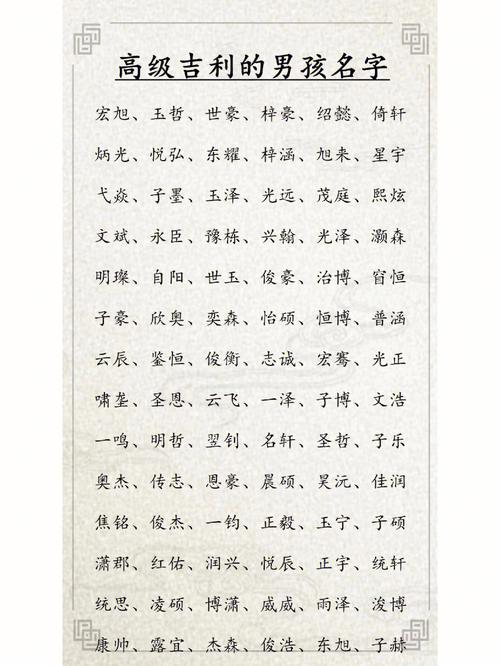 高级吉利的男孩名字
宏旭、玉哲、世豪、梓豪、绍懿、倚轩
炳光、悦弘、东耀、梓涵、旭来、星宇
弋焱、子墨、玉泽、光远、茂庭、熙炫
文斌、永臣、豫栋、兴翰、光泽、灏森
明璨、自阳、世玉、俊豪、治博、窅恒
子豪、欣奥、奕森、怡硕、恒博、普涵
云辰、鉴恒、俊衡、志诚、宏骞、光正
啸垄、圣恩、云飞、一泽、子博、文浩
一鸣、明哲、翌钊、名轩、圣哲、子乐
奥杰、传志、恩豪、晨硕、昊沅、佳润
焦铭、俊杰、一钧、正毅、玉宁、子硕
潇郡、红佑、润兴、悦辰、正宇、统轩
统思、凌硕、博潇、威威、雨泽、浚博
康帅、露宜、杰森、俊浩、东旭、子赫